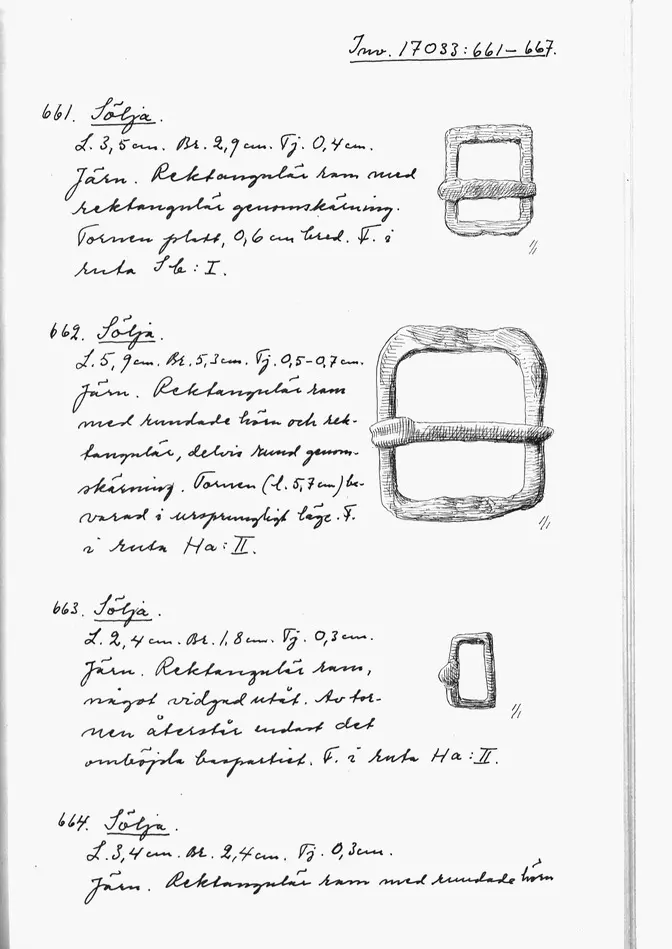 Inv. 17033:661–667.
661. Sölja.
L. 3,5 cm. Br. 2,9 cm. Tj. 0,4 cm.
Järn. Rektangulär ram med
rektangulär genomskärning.
Tornen platt, 0,6 cm bred. F. i
ruta Sb: I.
1/1
662. Sölja.
L. 5,9 cm. Br. 5,3 cm. Tj. 0,5–0,7 cm.
Järn. Rektangulär ram
med rundade hörn och rek-
tangulär, delvis rund genom-
skärning. Tornen (l. 5,7 cm) be-
varad i ursprungligt läge. F.
i ruta Ha: II.
1/1
663. Sölja.
L. 2,4 cm. Br. 1,8 cm. Tj. 0,3 cm.
Järn. Rektangulär ram,
något vidgad utåt. Av tor-
nen återstår endast det
omböjda baspartiet. F. i ruta Ha: II.
1/1
664. Sölja.
L. 3,4 cm. Br. 2,4 cm. Tj. 0,3 cm.
Järn. Rektangulär ram med rundade hörn